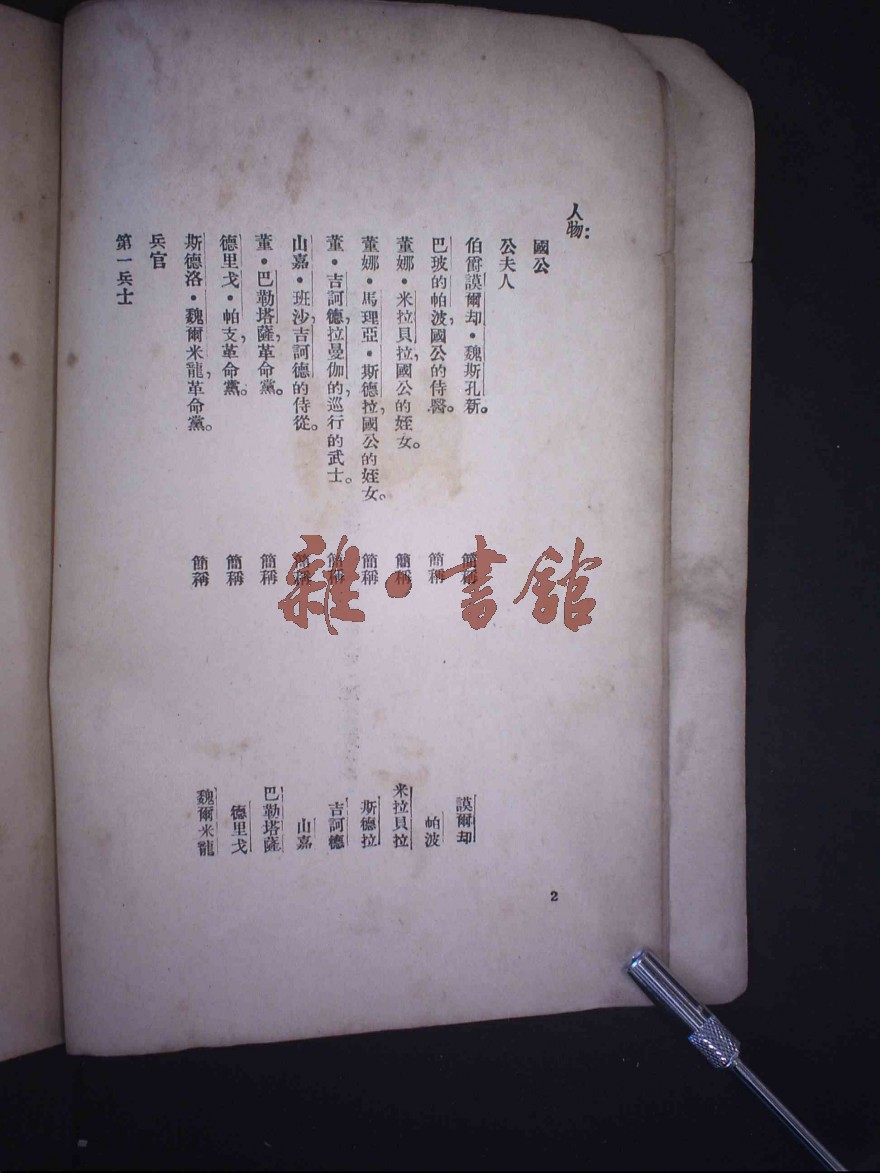 人物：
國公
公夫人
伯爵謨爾却・魏斯孔新。 簡稱 謨爾却
巴玻的帕波，國公的侍醫。 簡稱 帕波
董娜・米拉貝拉，國公的姪女。 簡稱 米拉貝拉
董娜・馬理亞・斯德拉，國公的姪女。 簡稱 斯德拉
董・吉訶德，拉曼伽的，巡行的武士。 簡稱 吉訶德
山嘉・班沙，吉訶德的侍從。 簡稱 山嘉
董・巴勒塔薩，革命黨。 簡稱 巴勒塔薩
德里戈・帕支，革命黨。 簡稱 德里戈
斯德洛・魏爾米龍，革命黨。 簡稱 魏爾米龍
兵官
第一兵士
2
雜・書館